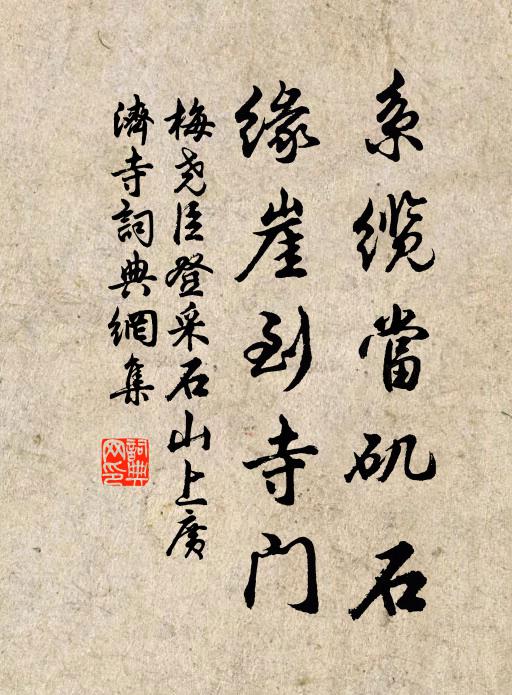 系缆當矶石
缘崖到寺门
梅尧臣登采石山上廣
濟寺詞典網集
詞典网印